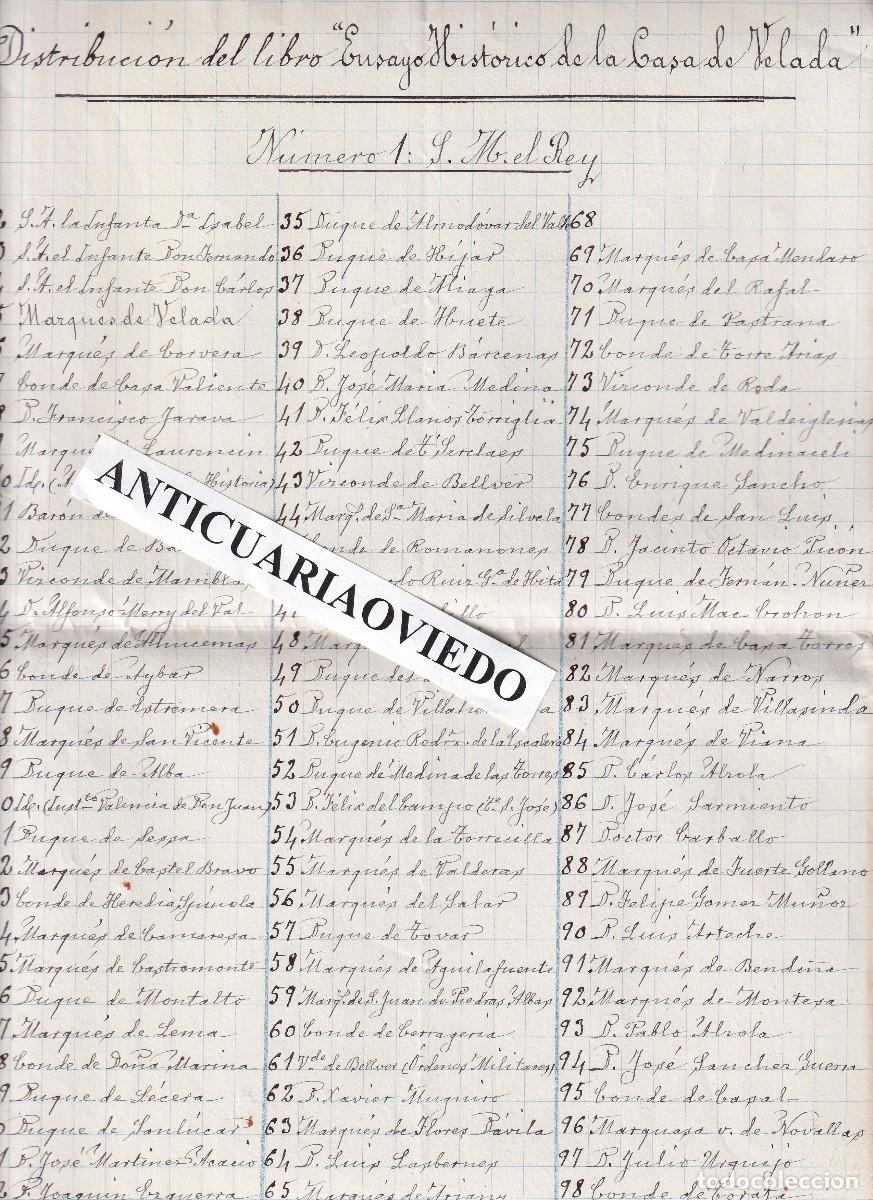 Distribución del libro "Ensayo Histórico de la Casa de Velada"
Número 1: S. M. el Rey
2 S. A. la Infanta Dª Isabel
3 S. A. el Infante Don Fernando
4 S. A. el Infante Don Cárlos
5 Marqués de Velada
6 Marqués de Corvera
7 Conde de Casa Valiente
8 D. Francisco Jarava
9 Marqués de Laurencín
0 Id. Historia)
1 Barón de
2 Duque de Ba
3 Vizconde de Mambla
4 D. Alfonso Merry del Val
5 Marqués de Alhucemas
6 Conde de Aybar
7 Duque de Estremera
8 Marqués de San Vicente
9 Duque de Alba
0 Id. (Instto Valencia de Don Juan)
1 Duque de Sessa
2 Marqués de Castel Bravo
3 Conde de Heredia Spínola
4 Marqués de Camarasa
5 Marqués de Castromonte
6 Duque de Montalto
7 Marqués de Lema
8 Conde de Doña Marina
9 Duque de Lécera
Duque de Sanlúcar
1 D. José Martinez Acacio
2 D. Joaquin Ezquerra
35 Duque de Almodóvar del Valle
36 Duque de Híjar
37 Duque de Aliaga
38 Duque de Huete
39 D. Leopoldo Bárcenas
40 D. José Maria Medina
41 D. Félix Llanos Torriglia
42 Duque de T'Serclaes
43 Vizconde de Bellver
44 Marqs. de Sta Maria de Silvela
Conde de Romanones
do Ruiz Gª de Hita
47 illo
48 Marq
49 Duque de
50 Duque de Villahe a
51 D. Eugenio Rodrz. de la Escalera
52 Duque de Medina de las Torres
53 D. Félix del Campo (Te. S. José)
54 Marqués de la Torrecilla
55 Marqués de Valderas
56 Marqués del Salar
57 Duque de Tovar
58 Marqués de Aguilafuente
59 Marqs. de S. Juan de Piedras Albas
60 Conde de Cerragería
61 Vde. de Bellver (Órdenes Militares)
62 D. Xavier Muguiro
63 Marqués de Flores Dávila
64 D. Luis Lasbennes
65 Marqués de Ariany
68
69 Marqués de Casa Mendaro
70 Marqués del Rafal
71 Duque de Pastrana
72 Conde de Torre Arias
73 Vizconde de Roda
74 Marqués de Valdeiglesias
75 Duque de Medinaceli
76 D. Enrique Sancho
77 Condes de San Luis
78 D. Jacinto Octavio Picón
79 Duque de Fernán-Nuñez
80 D. Luis Mac-Crohon
81 Marqués de Casa Torres
82 Marqués de Narros
83 Marqués de Villasinda
84 Marqués de Viana
85 D. Cárlos Alzola
86 D. José Sarmiento
87 Doctor Carballo
88 Marqués de Fuerte Gollano
89 D. Felipe Gomez Muñoz
90 D. Luis Arteche
91 Marqués de Bendaña
92 Marqués de Montesa
93 D. Pablo Alzola
94 D. José Sanchez Guerra
95 Conde de Casal
96 Marquesa v. de Novallas
97 D. Julio Urquijo
98 Conde de
ANTICUARIAOVIEDO
todocoleccion